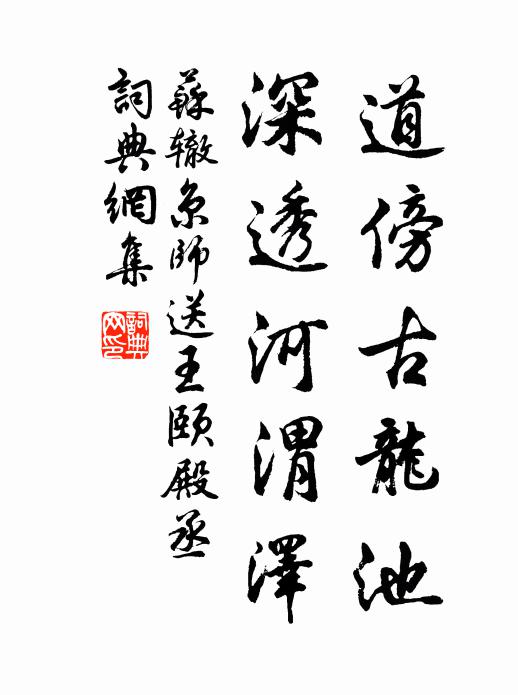 道傍古龍池
深透河渭澤
蘇辙京師送王颐殿丞
詞典網集
詞典網印